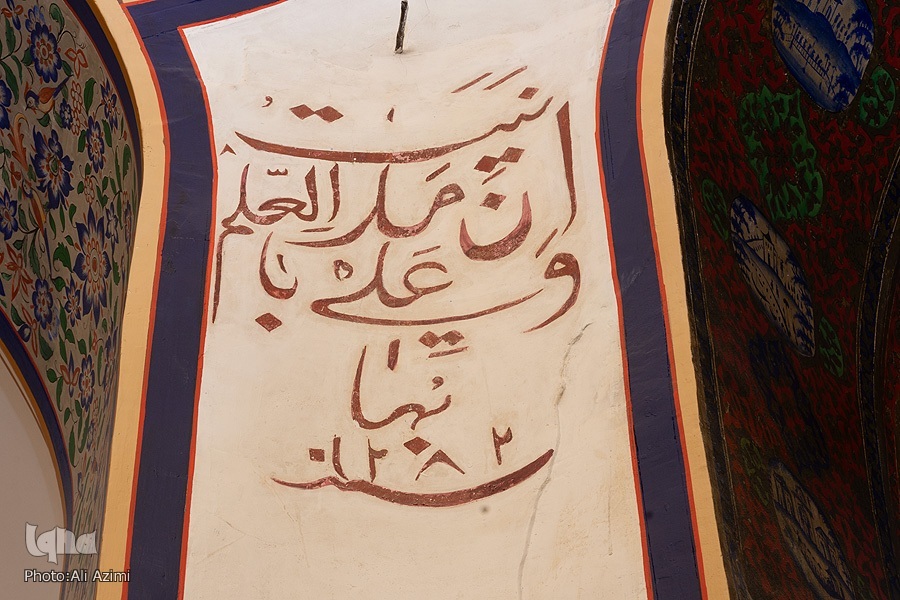 ان مدینت العلم
و علی با
بها
سنه ۱۲۸۲
Iqna
Photo:Ali Azimi